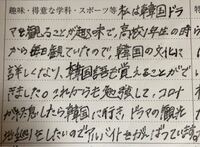 趣味・得意な学科・スポーツ等 私は韓国ドラ
マを観ることが趣味で、高校1年生の時
から毎日観ていたので、韓国の文化に
詳しくなり、韓国語も覚えることがで
きました。これからも勉強して、コロナ
が終息したら韓国に行き、ドラマの観光
地巡りをしたいのでアルバイトをがんばっています